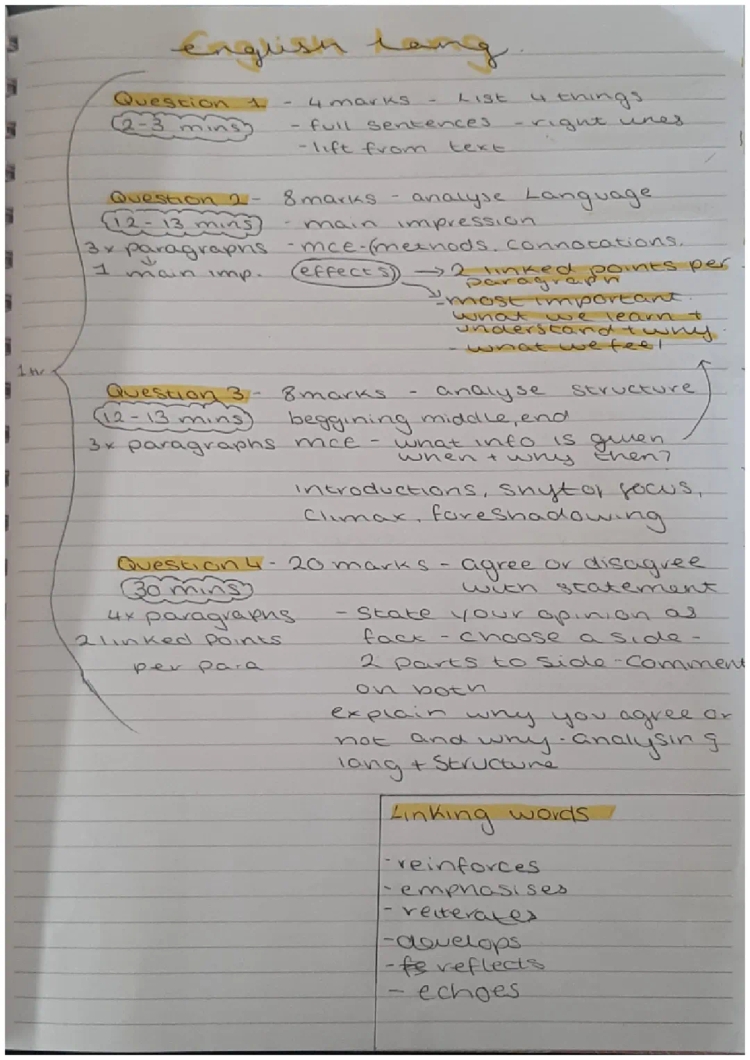 English Lang.
Question 1 - 4 marks - List 4 things
2-3 mins - full sentences - right lines
- lift from text
Question 2 - 8 marks - analyse Language
12-13 mins - main impression
3x paragraphs - mce - (methods. connotations.
1 main imp. (effects) → 2 linked points per
paragraph
- most important.
what we learn +
understand + why.
- what we feel
1hr
Question 3 - 8 marks - analyse structure
12-13 mins beggining middle, end
3x paragraphs mce - what info is given
when + why then?
introductions, shift of focus,
climax, foreshadowing
Question 4 - 20 marks - agree or disagree
30 mins with statement
4x paragraphs - State your opinion as
2 linked points fact - choose a side -
per para 2 parts to side - comment
on both
explain why you agree or
not and why. analysing
lang + structure
Linking words
- reinforces
- emphasises
- reiterates
- develops
- reflects
- echoes